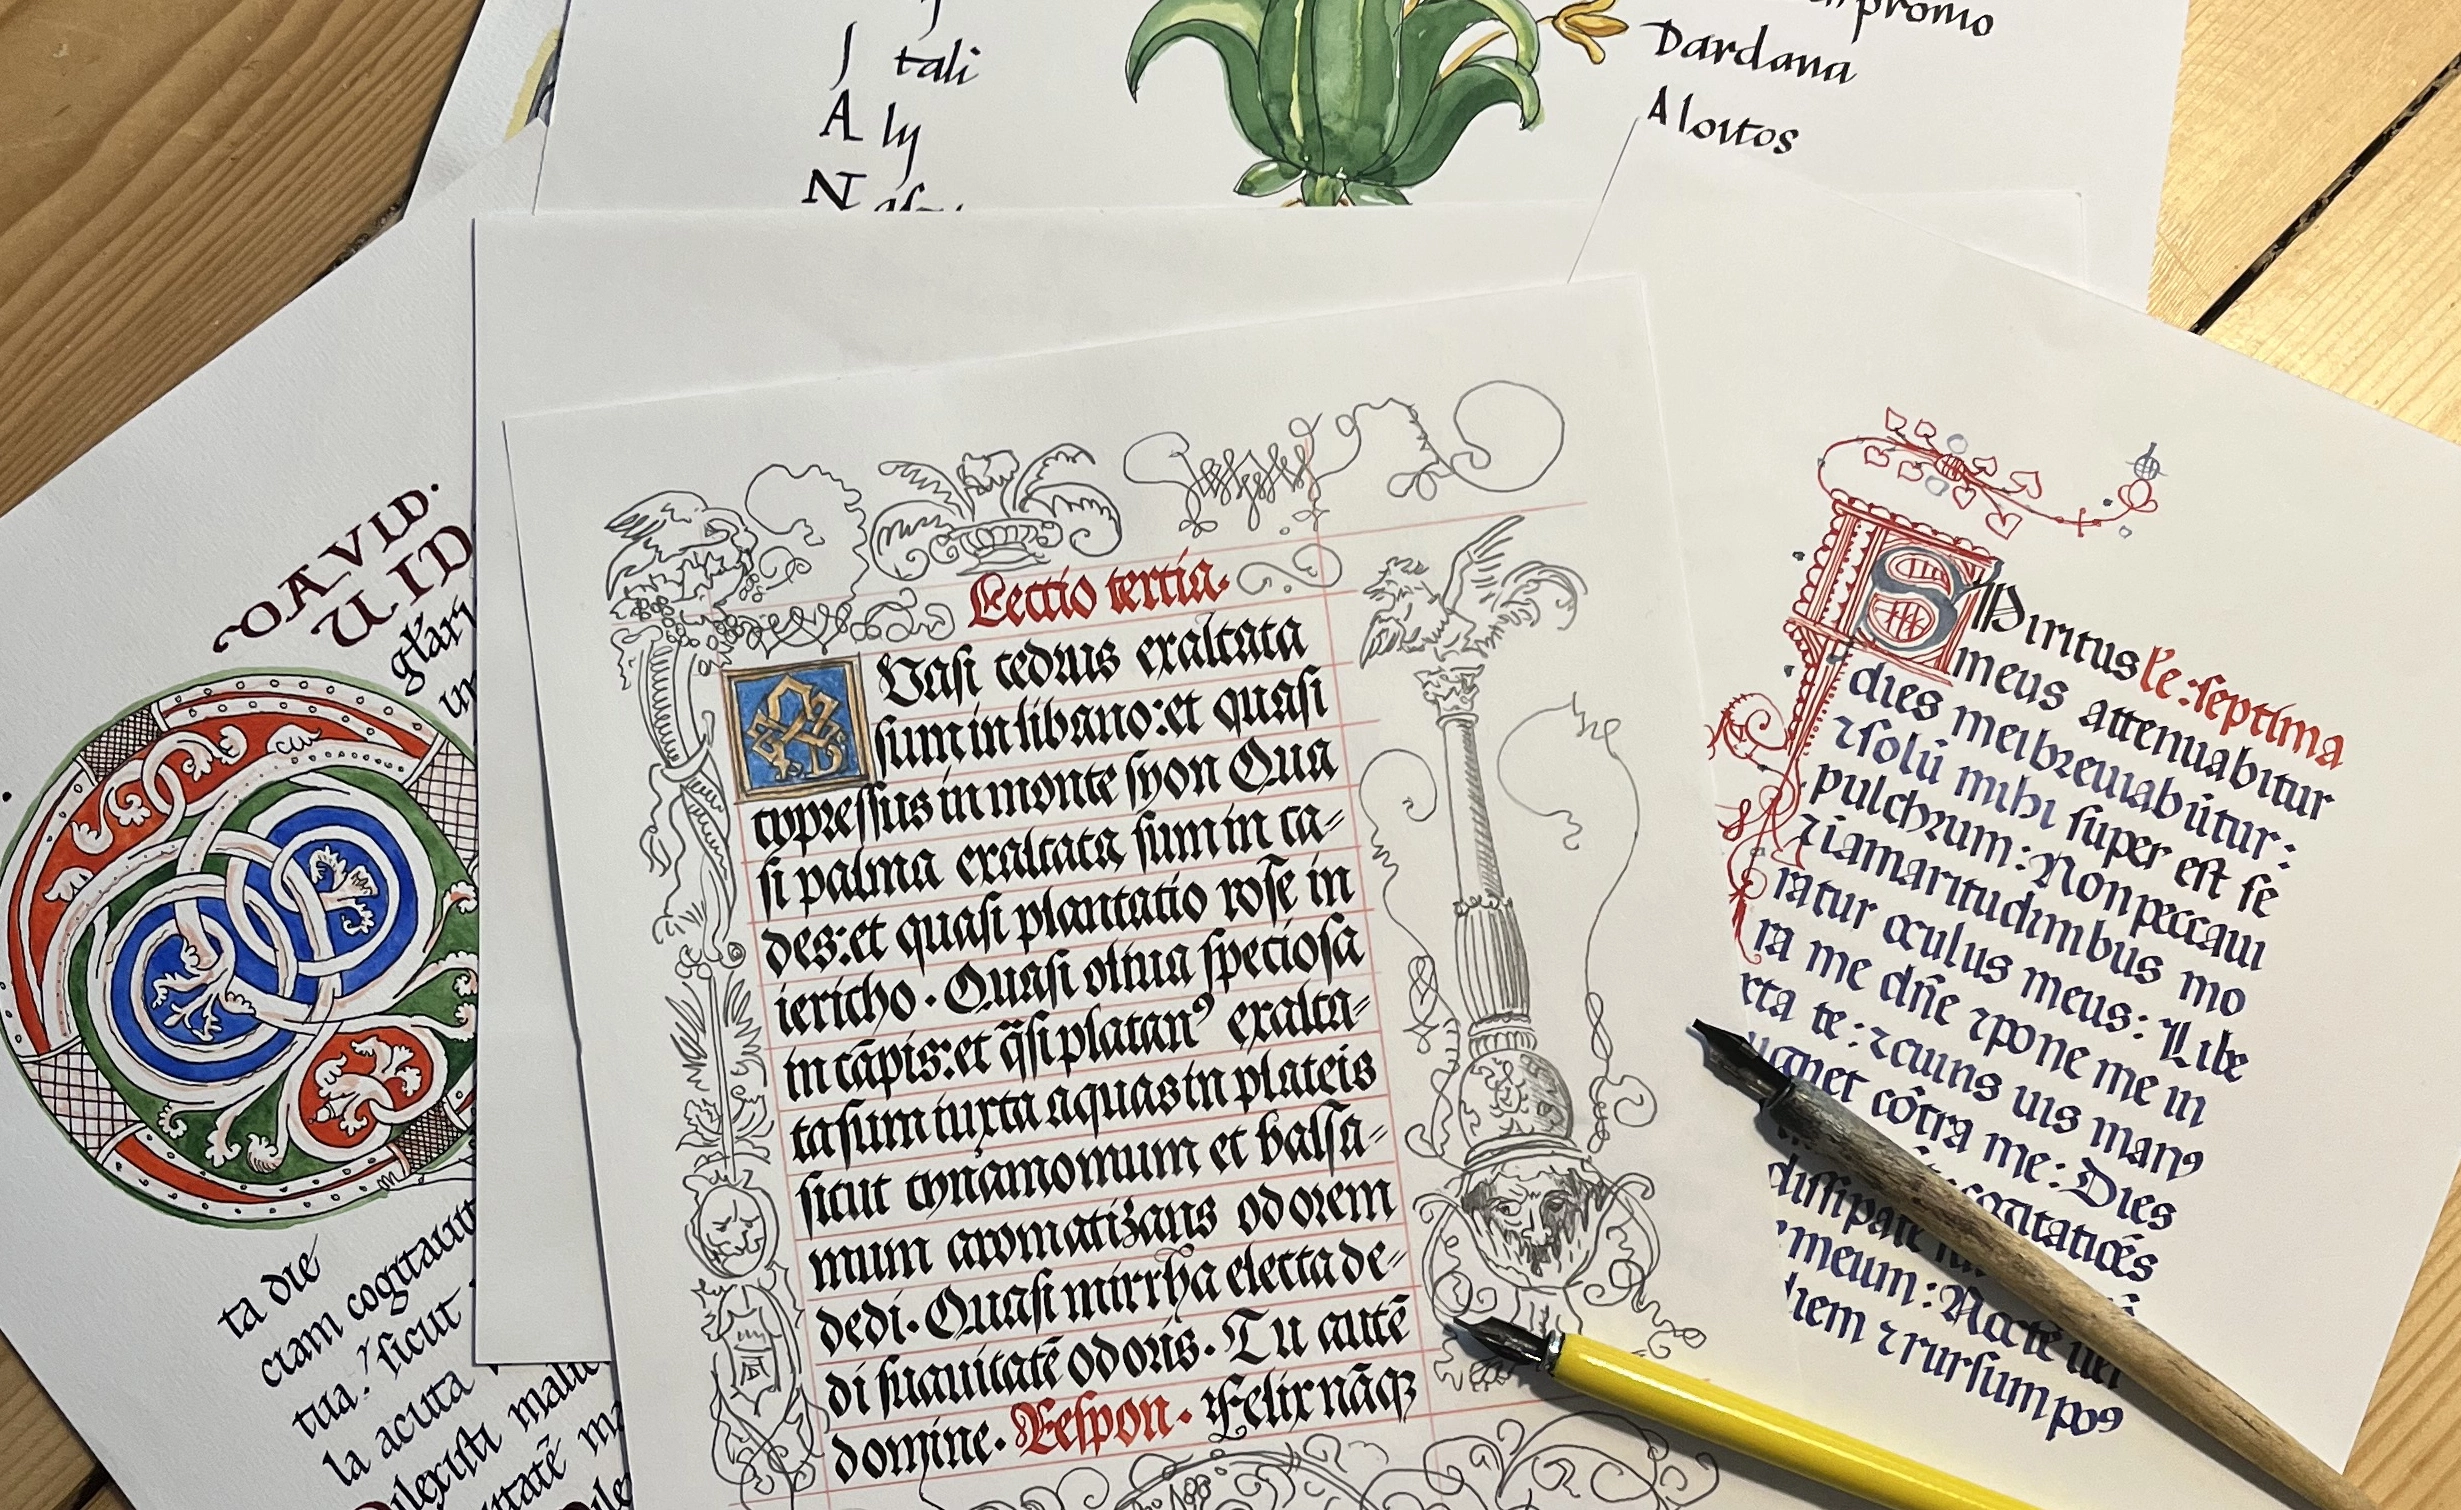 tali
A ly
N
promo
Dardana
Aloitos
DAVID.
UID
glari
ta die
ciam cogitauit
tua: sicut
la acuta
Dilexisti mali
Lectio tertia.
Quasi cedrus exaltata
sum in libano: et quasi
cypressus in monte syon Qua
si palma exaltata sum in ca⸗
des: et quasi plantatio rose in
iericho. Quasi oliua speciosa
in cāpis: et q̄si platanꝰ exalta⸗
ta sum iuxta aquas in plateis
sicut cynamomum et balsa⸗
mum aromatizans odorem
dedi. Quasi mirrha electa de⸗
di suauitatē odoris. Tu autē
domine. Respon. Felix nāqꝫ
SPiritus le: septima
meus attenuabitur
dies mei breuiabūtur:
⁊ solū mihi super est se
pulchrum: Non peccaui
⁊ iamaritudinibus mo
ratur oculus meus: Libe
ra me dn̄e ⁊ pone me in
xta te: ⁊ cuius uis manꝰ
ugnet cōtra me: Dies
cogitatiōēs
dissipate
meum: Nocte
diem ⁊ rursum poꝰ